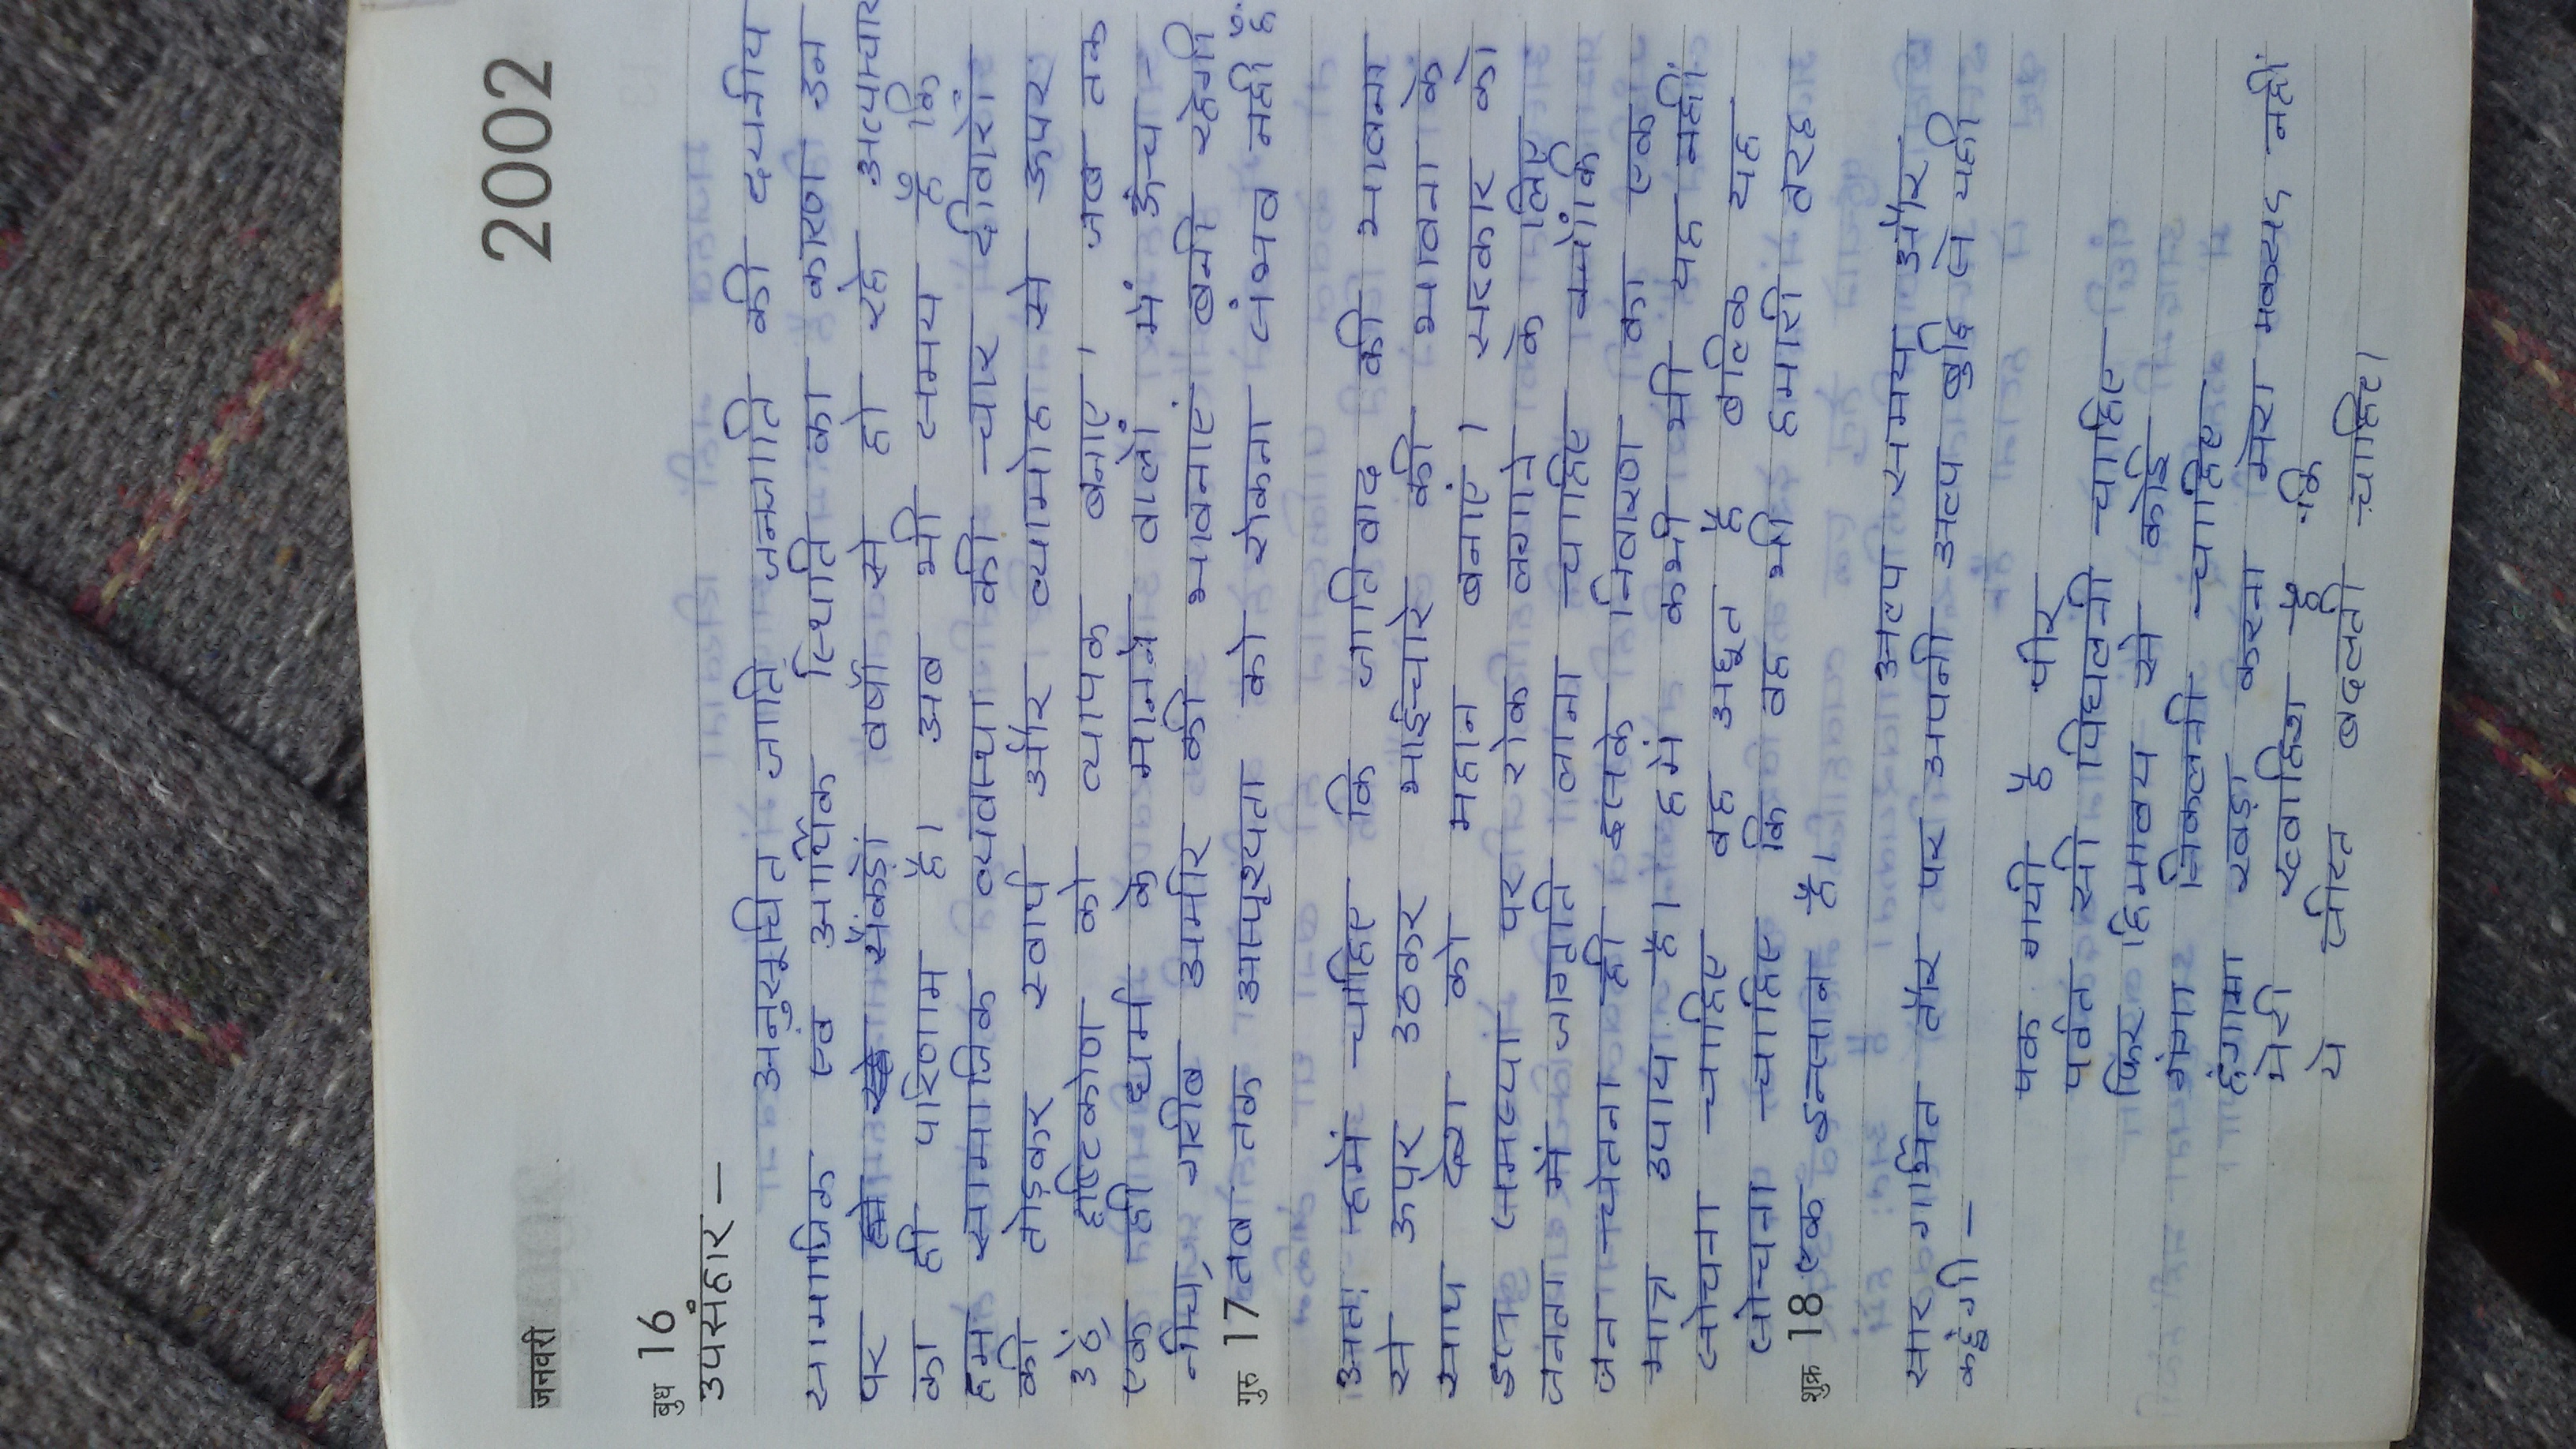 जनवरी 2002
बुध 16
उपसंहार –
अनुसूचित जाति जनजाति की दयनीय
सामाजिक एवं आर्थिक स्थिति का कारण उन
पर सैकड़ों वर्षो से हो रहे अत्याचार
का ही परिणाम है। अब भी समय है कि
हम सामाजिक व्यवस्था की चार दीवारों
को तोड़कर स्वार्थ और व्यामोह से ऊपर
उठे दृष्टिकोण को व्यापक बनाए। जब तक
एक ही धर्म के मानने वालों में ऊँच
नीच, गरीब अमीर की भावनाएं बनी रहेगी
गुरु 17 तब तक अस्पृश्यता को रोकना संभव नही है
अतः हमें चाहिए कि जातिवाद की भावना
से ऊपर उठकर भाईचारे की भावना के
साथ देश को महान बनाएं। सरकार को
इस समस्या पर रोक लगाने के लिए
जनता में जागृति लाना चाहिए क्योंकि
जन चेतना ही इसके निवारण का एक
मात्र उपाय है। हमें कभी भी यह नहीं
सोचना चाहिए वह अछूत है बल्कि यह
सोचना चाहिए कि वह भी हमारी तरह
शुक्र 18 एक इन्सान है।
अल्प समय और
सार गर्भित तौर पर अपनी अल्प बुद्धि से यही
कहूंगी –
पक गयी है पीर
पर्वत सी पिघलनी चाहिए
फिर हिमालय से कोई
गंगा निकलनी चाहिए
हंगामा खड़ा करना मेरा मकसद नहीं
मेरी ख्वाहिश है कि
ये सीरत बदलनी चाहिए।